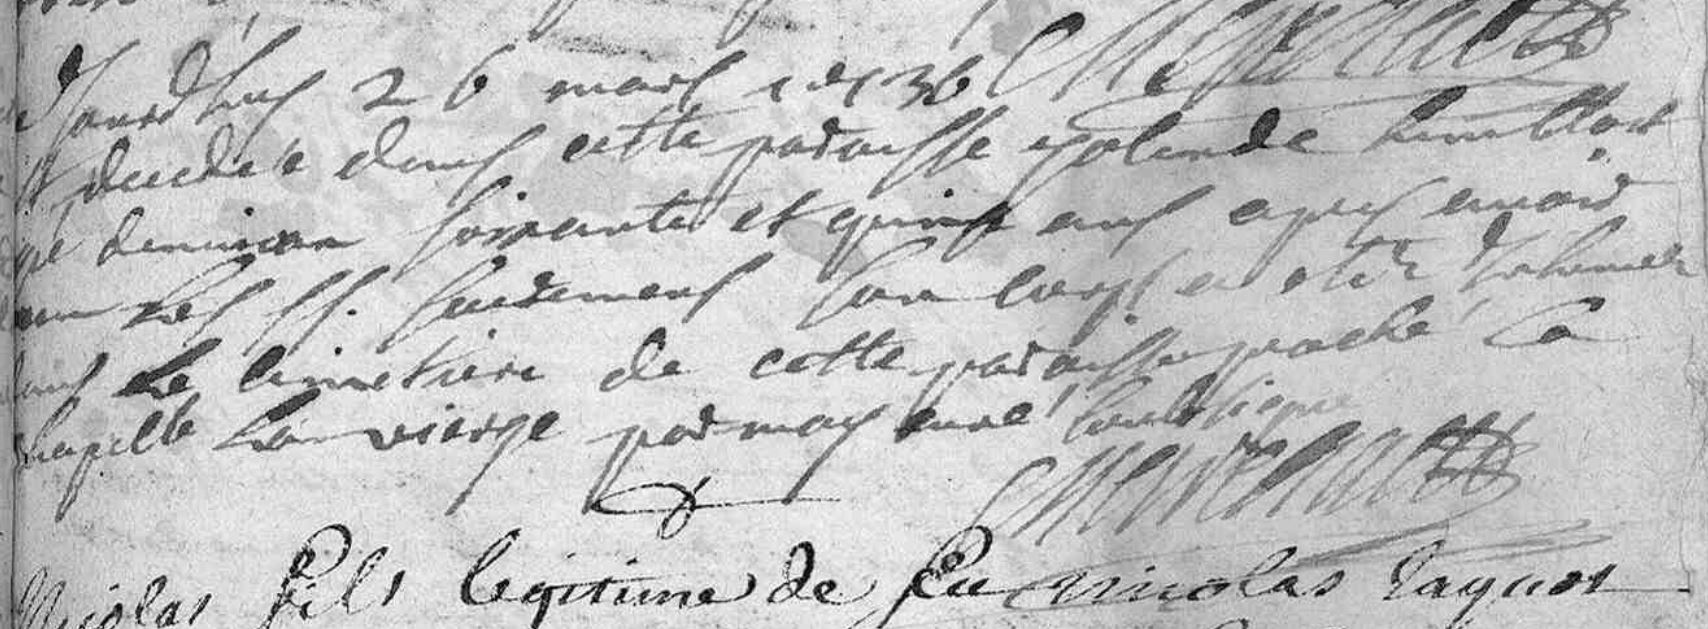 jourdhuy 26 mars
est decedée dans cette paroisse yolande
agé denuiron soixante et quinze ans apres auoir
receu les ss. sacremens son corps a eté inhumé
dans le cimetiere de cette paroisse proche la
chapelle la vierge par moy curé soubsigné
Nicolas fils legitime de feu nicolas Jaquot